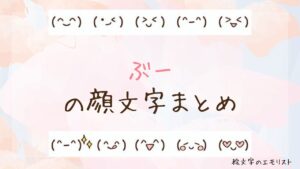 (^‿^) (•̀ᴗ<) (>ᴗ<) (^-^) (>▽<)
ぶー
の顔文字まとめ
(^-^)✨ (^ᴗ^) (^▽^) (◡‿◡) (♡‿♡)
絵文字のエモリスト